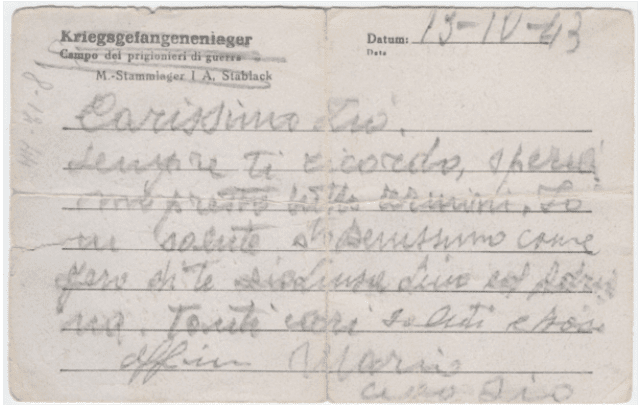 Kriegsgefangenenlager
Campo dei prigionieri di guerra
M.-Stammlager I A, Stablack
Datum: 13-IV-43
Data
Carissimo Zio,
sempre ti ricordo, speria
mo presto tutto termini. Io
di salute sto benissimo come
pero di te
. Tanti cari saluti e
affmo Mario
ciao Zio